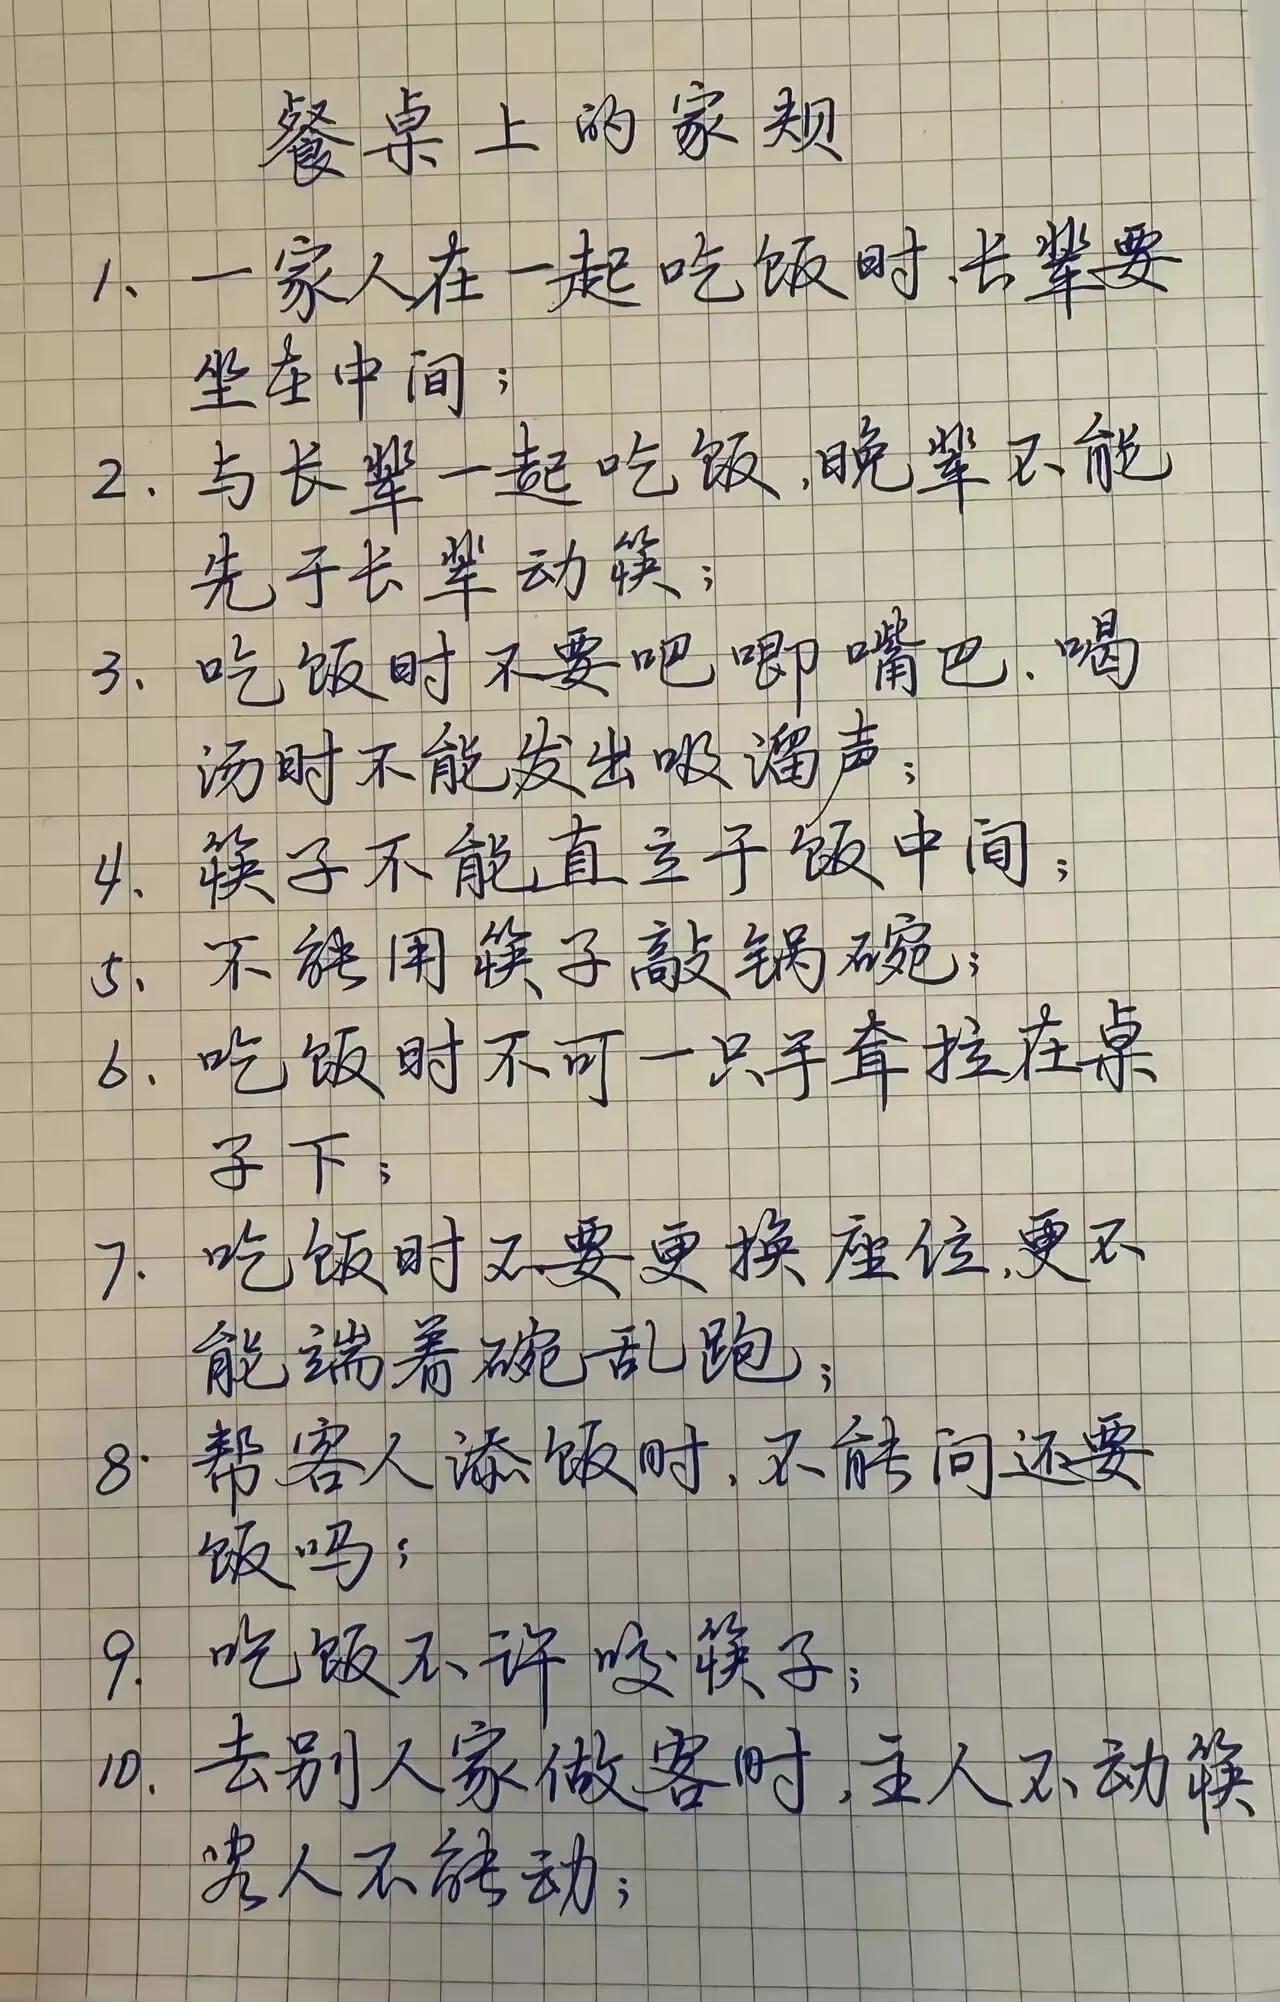 餐桌上的家规
1、一家人在一起吃饭时,长辈要
坐在中间;
2.与长辈一起吃饭,晚辈不能
先于长辈动筷;
3.吃饭时不要吧唧嘴巴.喝
汤时不能发出吸溜声;
4、筷子不能直立于饭中间;
5、不能用筷子敲锅碗;
6.吃饭时不可一只手耷拉在桌
子下;
7.吃饭时不要更换座位,更不
能端着碗乱跑;
8.帮客人添饭时,不能问还要
饭吗;
9.吃饭不许咬筷子;
10.去别人家做客时,主人不动筷
客人不能动;